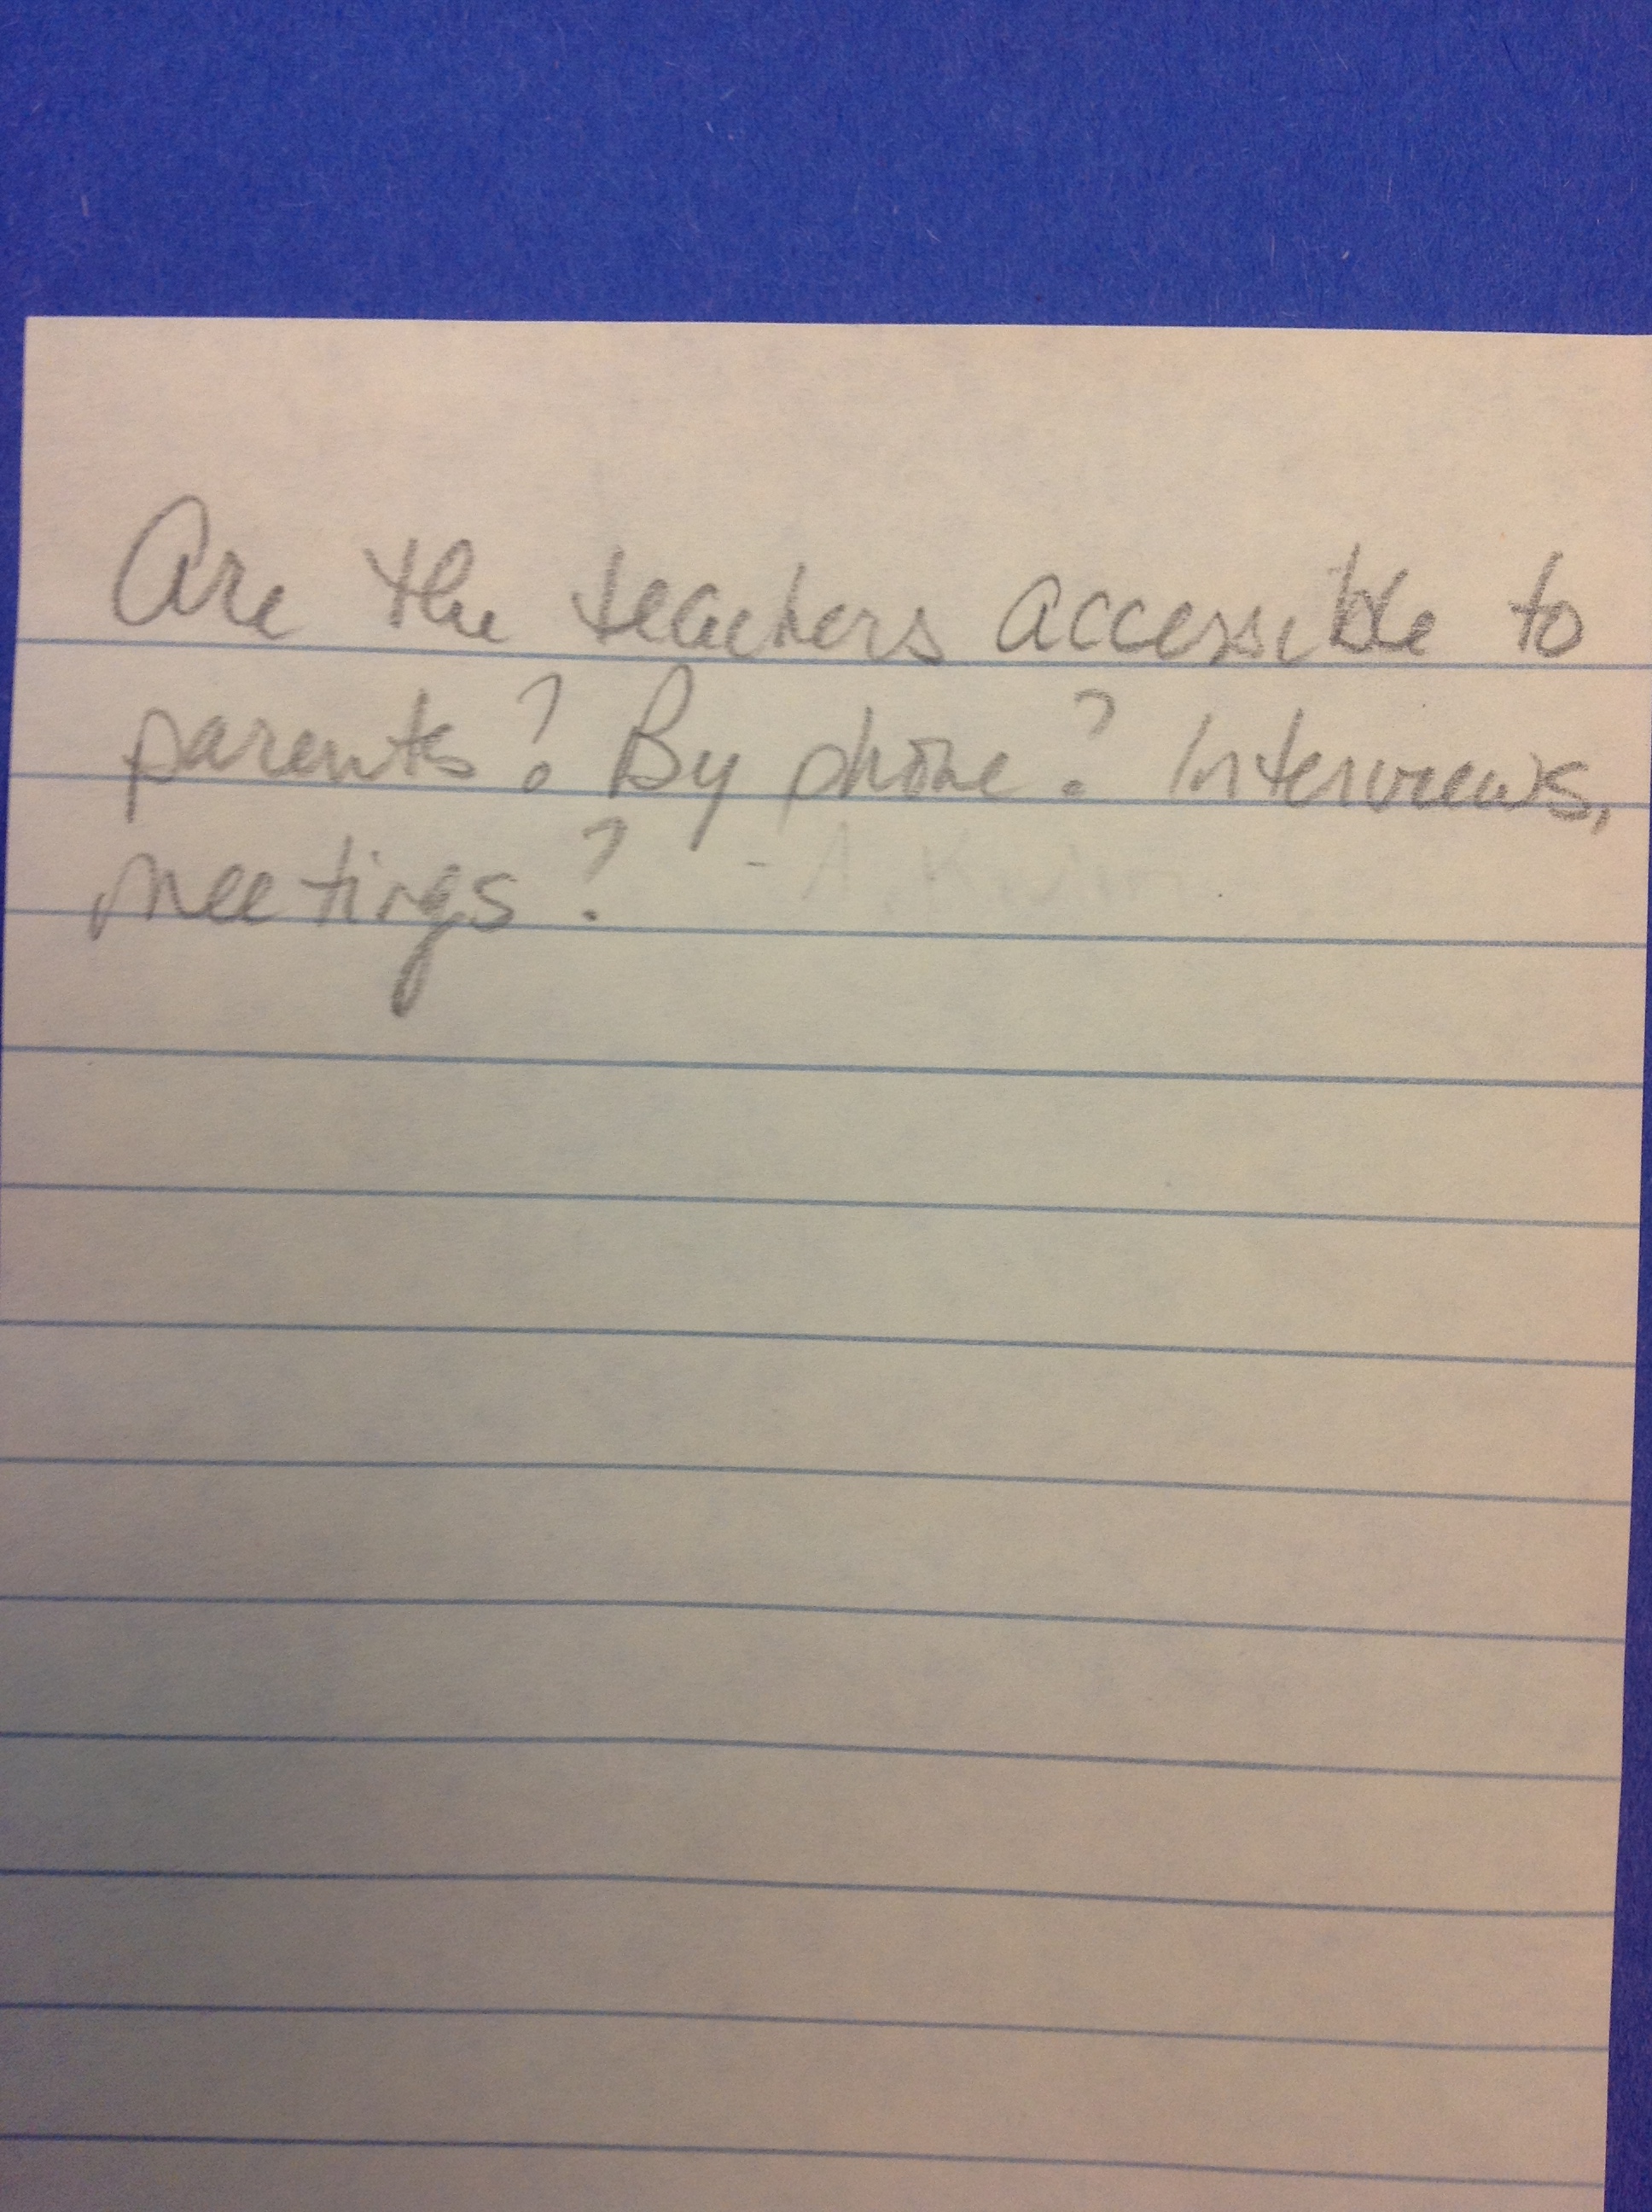 Are the teachers accessible to
parents? By phone? Interviews,
meetings? -